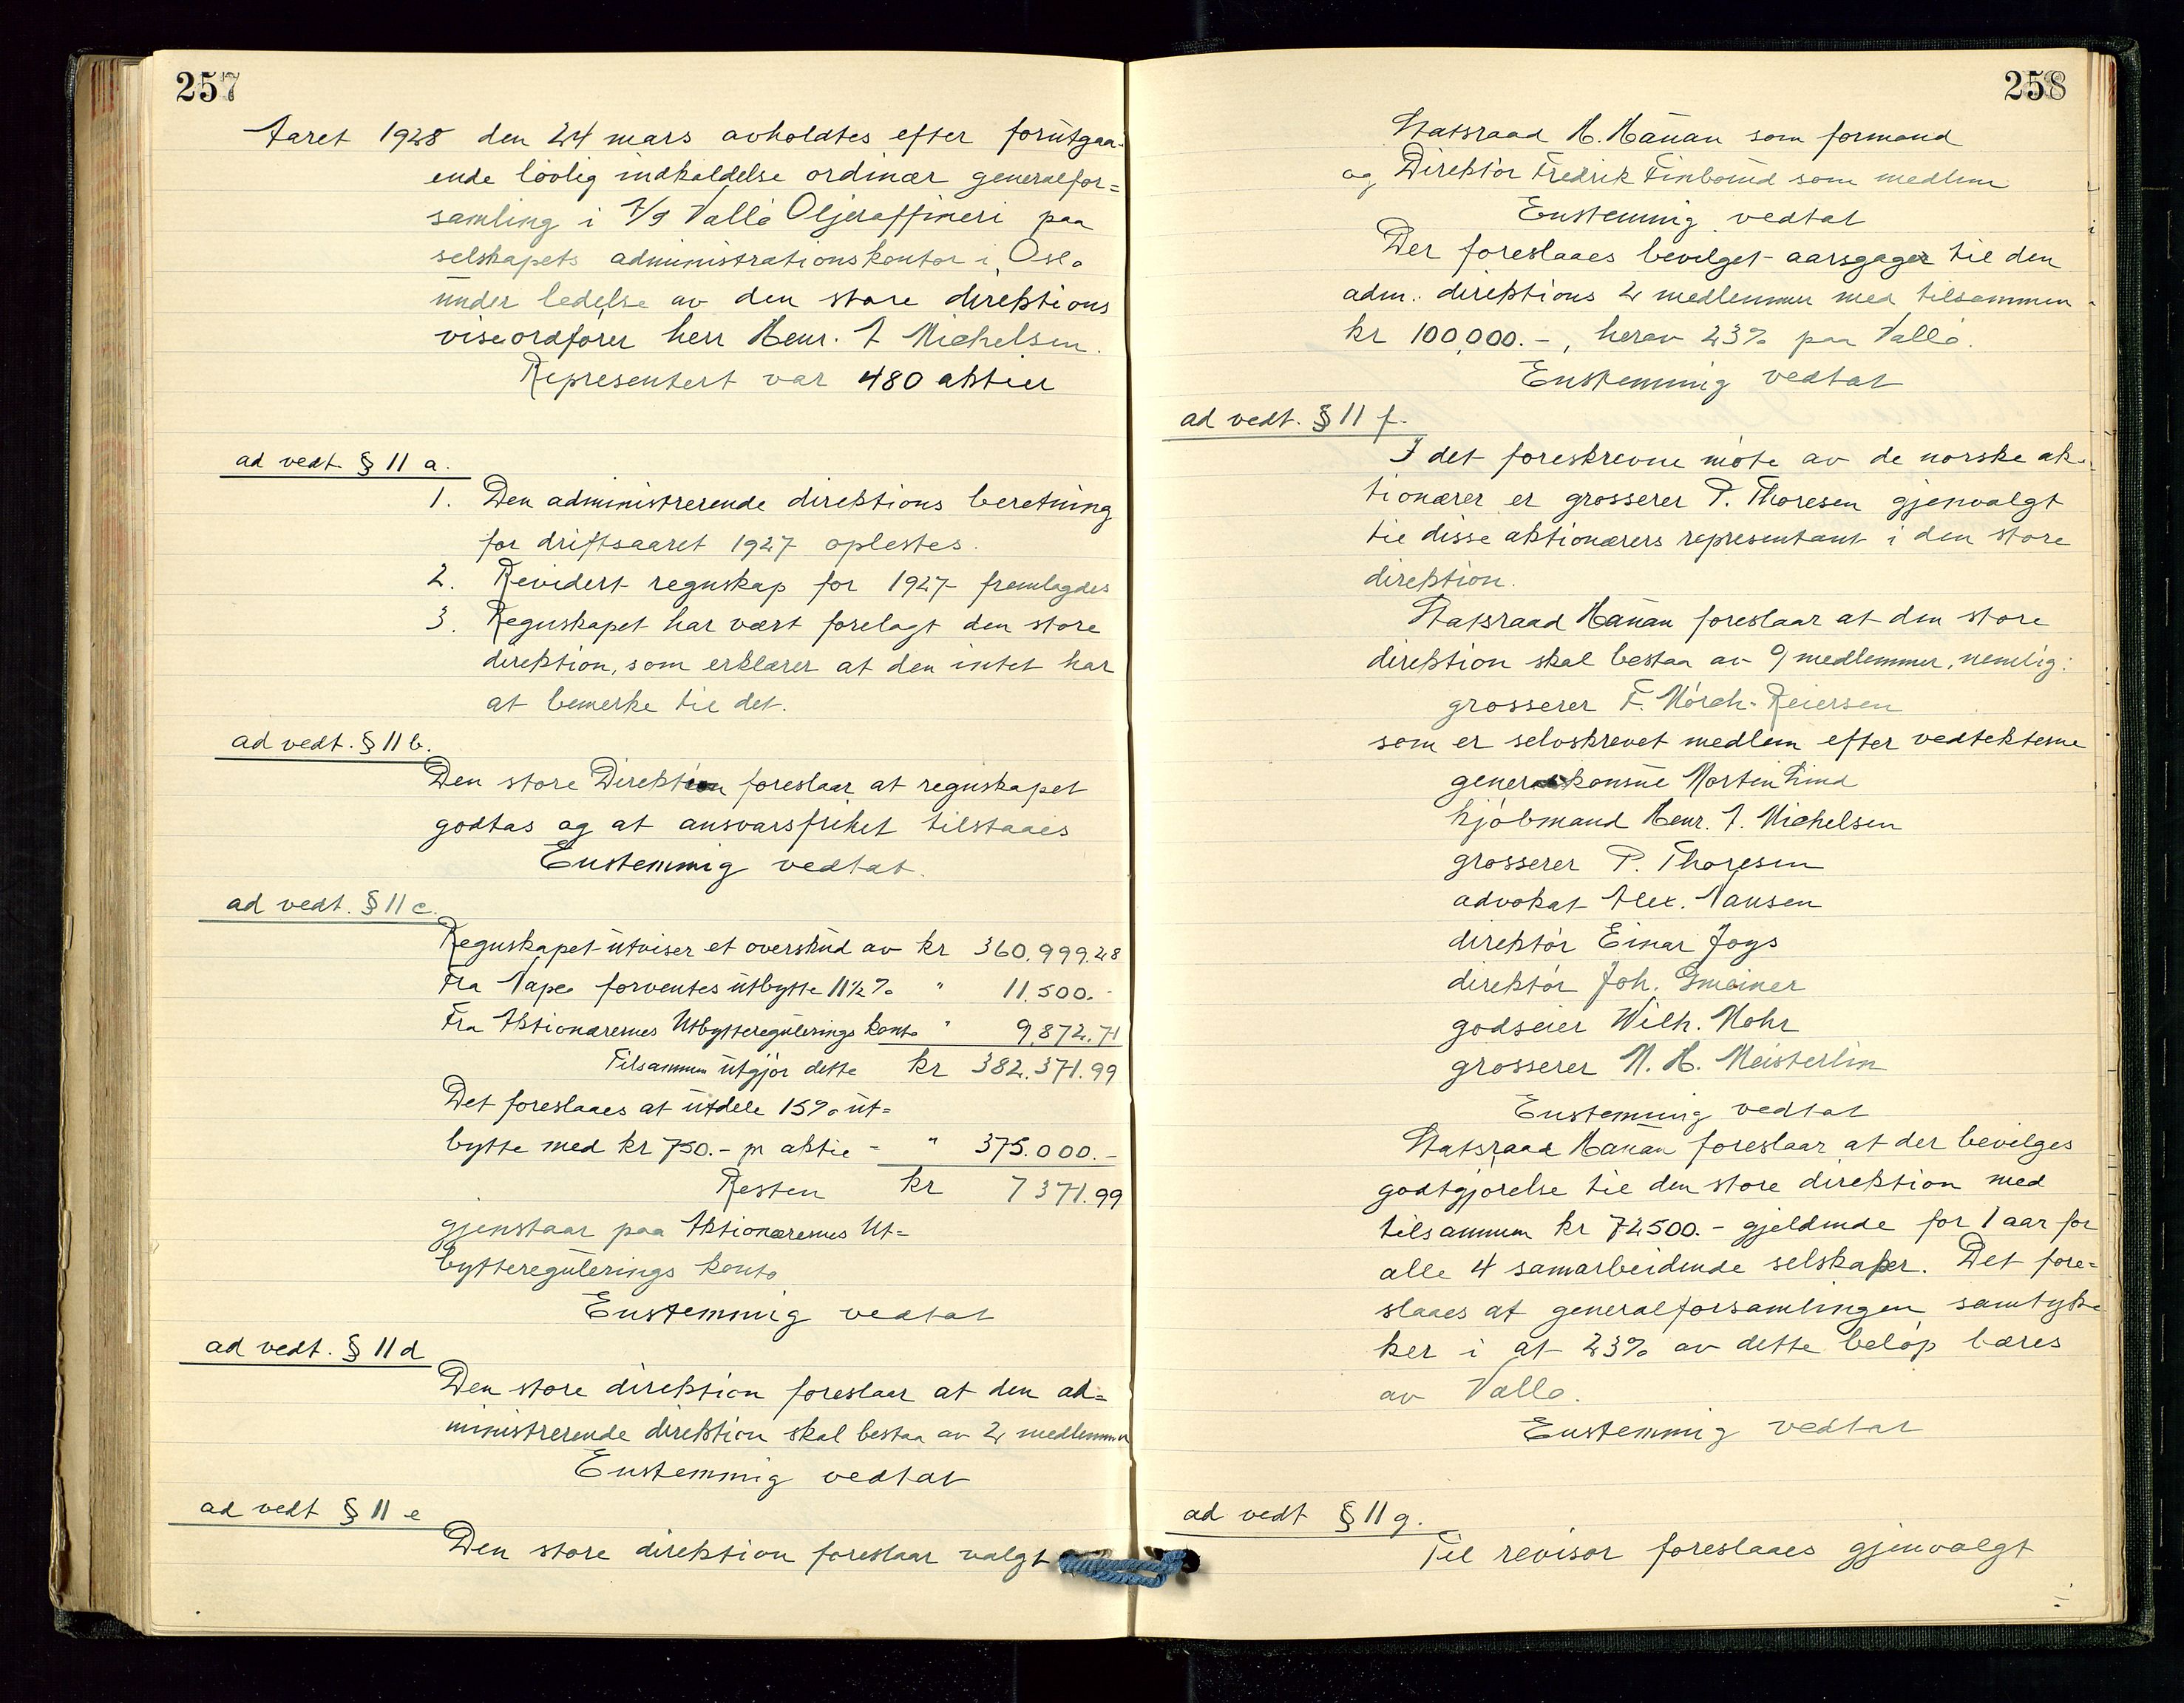 257
Aaret 1928 den 24 mars avholdtes efter forutgaa-
ende lovlig indkaldelse ordinær generalfor=
samling i A/S Vallø Oljeraffineri paa
selskapets administrationskontor i Oslo
under ledelse av den store direktions
viseordfører herr Henr. A Michelsen.
Representert var 480 aktier
ad vedt § 11 a.
1. Den administrerende direktions beretning
for driftsaaret 1927 oplestes.
2. Revidert regnskap for 1927 fremlagdes
3. Regnskapet har vært forelagt den store
direktion, som erklærer at den intet har
at bemerke til det.
ad vedt. § 11 b.
Den store Direktion foreslaar at regnskapet
godtas og at ansvarsfrihet tilstaaes
Enstemmig vedtat.
ad vedt. § 11 c.
Regnskapet utviser et overskud av kr 360.999.28
Fra Vapeo forventes utbytte 11½% " 11.500.-
Fra Aktionærernes Utbyttereguleringskonto " 9.872.71
Tilsammen utgjør dette kr 382.371.99
Det foreslaaes at utdele 15% ut=
bytte med kr 750.- pr aktie = " 375.000.-
Resten kr 7371.99
gjenstaar paa Aktionærernes Ut=
bytteregulerings konto
Enstemmig vedtat
ad vedt. § 11 d
Den store direktion foreslaar at den ad=
ministrerende direktion skal bestaa av 2 medlemmer
Enstemmig vedtat
ad vedt § 11 e
Den store direktion foreslaar valgt
258
Statsraad H. Hauan som formand
og Direktør Fredrik Finborud som medlem
Enstemmig vedtat
Der foreslaaes bevilget aarsgager til den
adm. direktions 2 medlemmer med tilsammen
kr 100,000.-, herav 23% paa Vallø.
Enstemmig vedtat
ad vedt. § 11 f.
I det foreskrevne møte av de norske ak-
tionærer er grosserer P. Thoresen gjenvalgt
til disse aktionærers representant i den store
direktion.
Statsraad Hauan foreslaar at den store
direktion skal bestaa av 9 medlemmer, nemlig:
grosserer F. Mørch-Reiersen
som er selvskrevet medlem efter vedtekterne
generalkonsul Morten Lind
kjøbmand Henr. A. Michelsen
grosserer P. Thoresen
advokat Alex. Nansen
direktør Einar Joys
direktør Joh. Gmeiner
godseier Wilh. Mohr
grosserer N. H. Meisterlin
Enstemmig vedtat
Statsraad Hauan foreslaar at der bevilges
godtgjørelse til den store direktion med
tilsammen kr 72500.- gjeldende for 1 aar for
alle 4 samarbeidende selskaper. Det fore=
slaaes at generalforsamlingen samtyk-
ker i at 23% av dette beløp bæres
av Vallø.
Enstemmig vedtat
ad vedt § 11 g.
Til revisor foreslaaes gjenvalgt